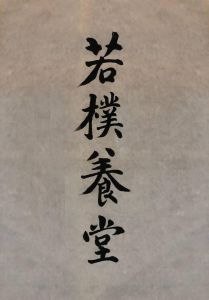 若樸養堂